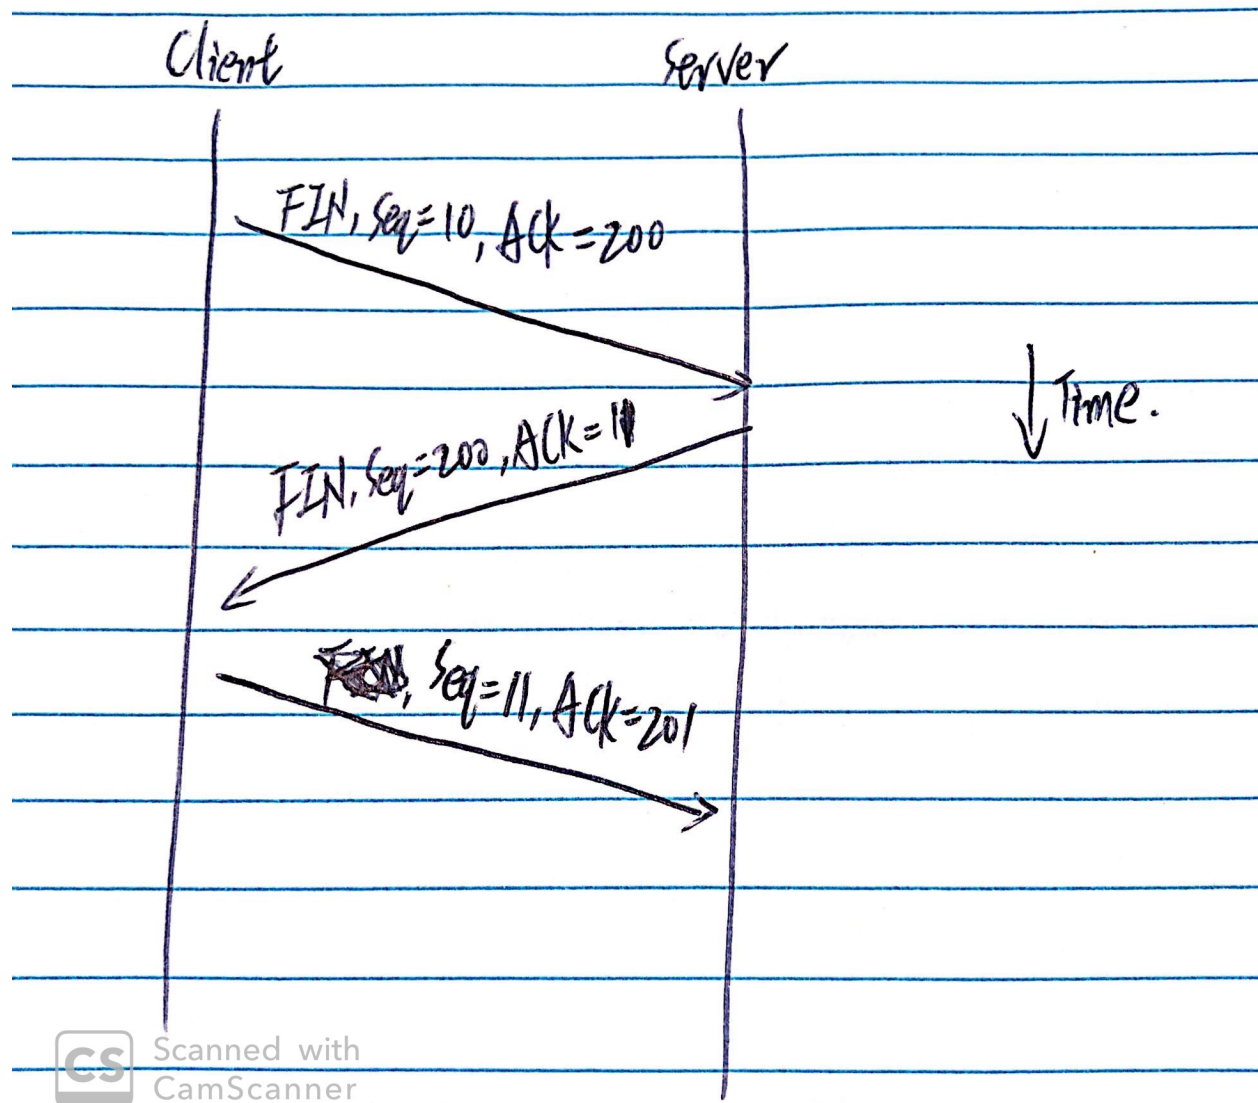 Client
Server
FIN, Seq=10, ACK=200
Time.
FIN, Seq=200, ACK=11
Seq=11, ACK=201
CS Scanned with
CamScanner